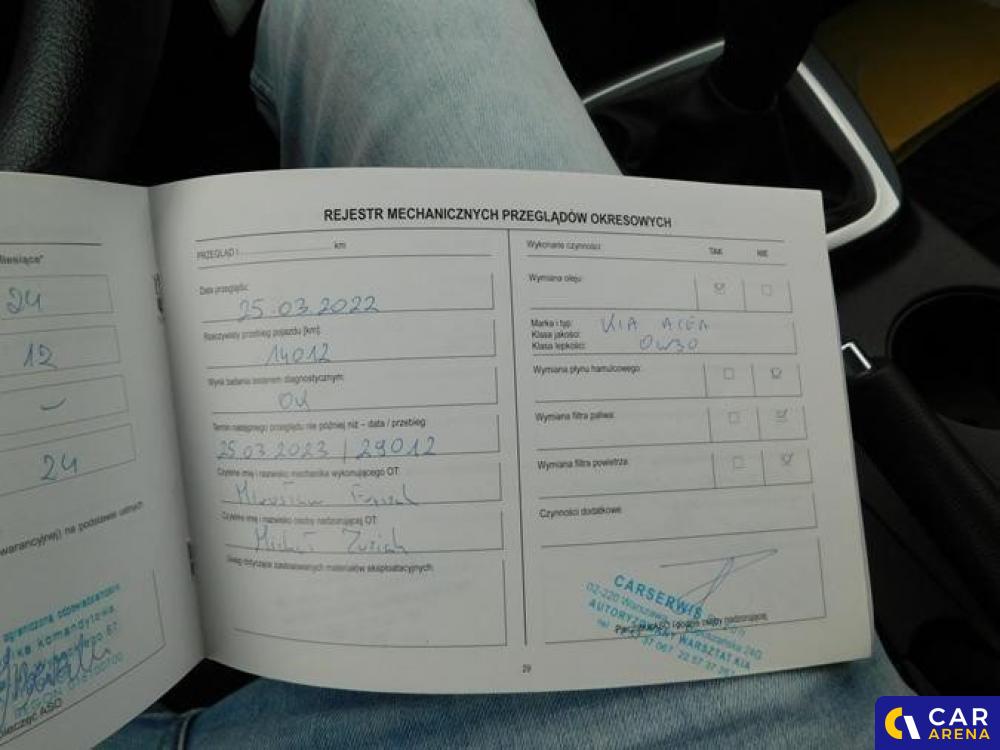 Miesiące"
24
12
24
warancyjnej) na podstawie
ograniczoną odpowiedzialnością
ka komandytowa
67
ieczęć ASO
REJESTR MECHANICZNYCH PRZEGLĄDÓW OKRESOWYCH
PRZEGLĄD I km
Data przeglądu:
25.03.2022
Rzeczywisty przebieg pojazdu [km]:
14012
Wynik badania testerem diagnostycznym:
OK
Termin następnego przeglądu nie później niż – data / przebieg:
25.03.2023 / 29012
Czytelne imię i nazwisko mechanika wykonującego OT:
Mirosław
Czytelne imię i nazwisko osoby nadzorującej OT:
Michał
Uwagi dotyczące zastosowanych materiałów eksploatacyjnych:
Wykonane czynności: TAK NIE
Wymiana oleju:
Marka i typ: KIA ACEA
Klasa jakości:
Klasa lepkości: 0W30
Wymiana płynu hamulcowego:
Wymiana filtra paliwa:
Wymiana filtra powietrza:
Czynności dodatkowe:
CARSERWIS
02-220 Warszawa 24G
AUTORYZOWANY WARSZTAT KIA
i podpis osoby nadzorującej
29
CAR
ARENA